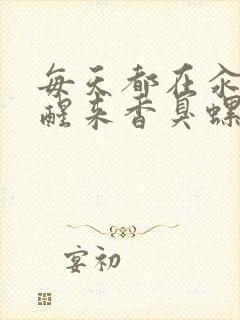 每天都在汆
醒来香臭螺
宴初